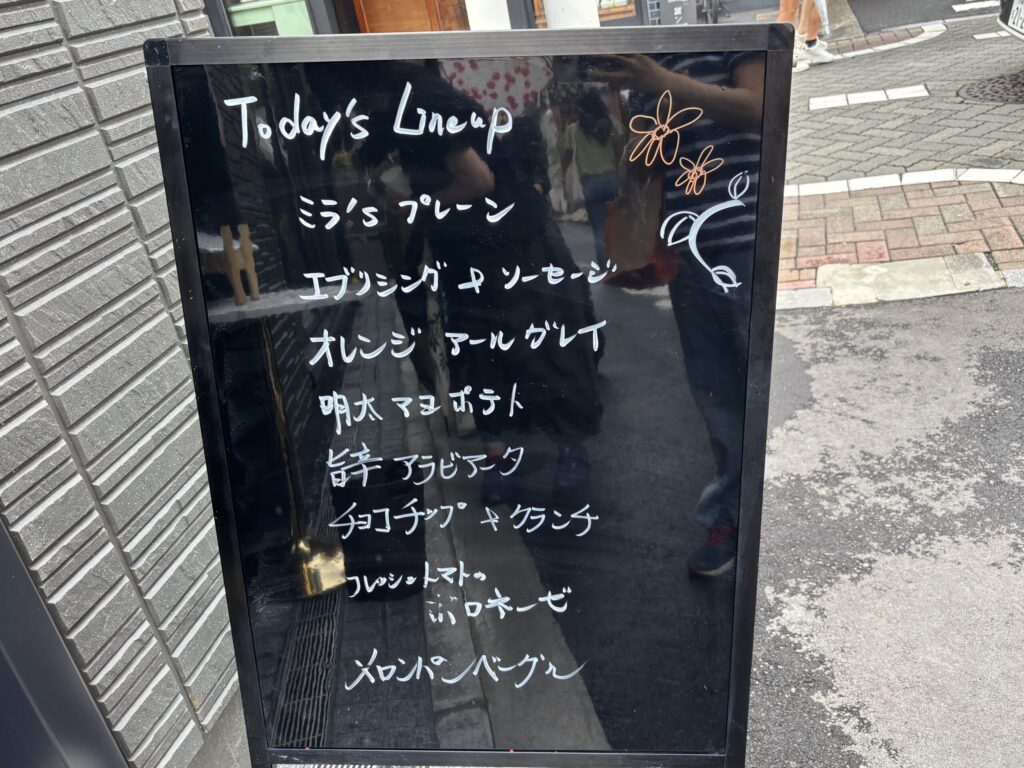 Today's Lineup
ミラ's プレーン
エブリシング + ソーセージ
オレンジ アールグレイ
明太マヨポテト
旨辛アラビアータ
チョコチップ + クランチ
フレッシュトマトの
ボロネーゼ
メロンパンベーグル